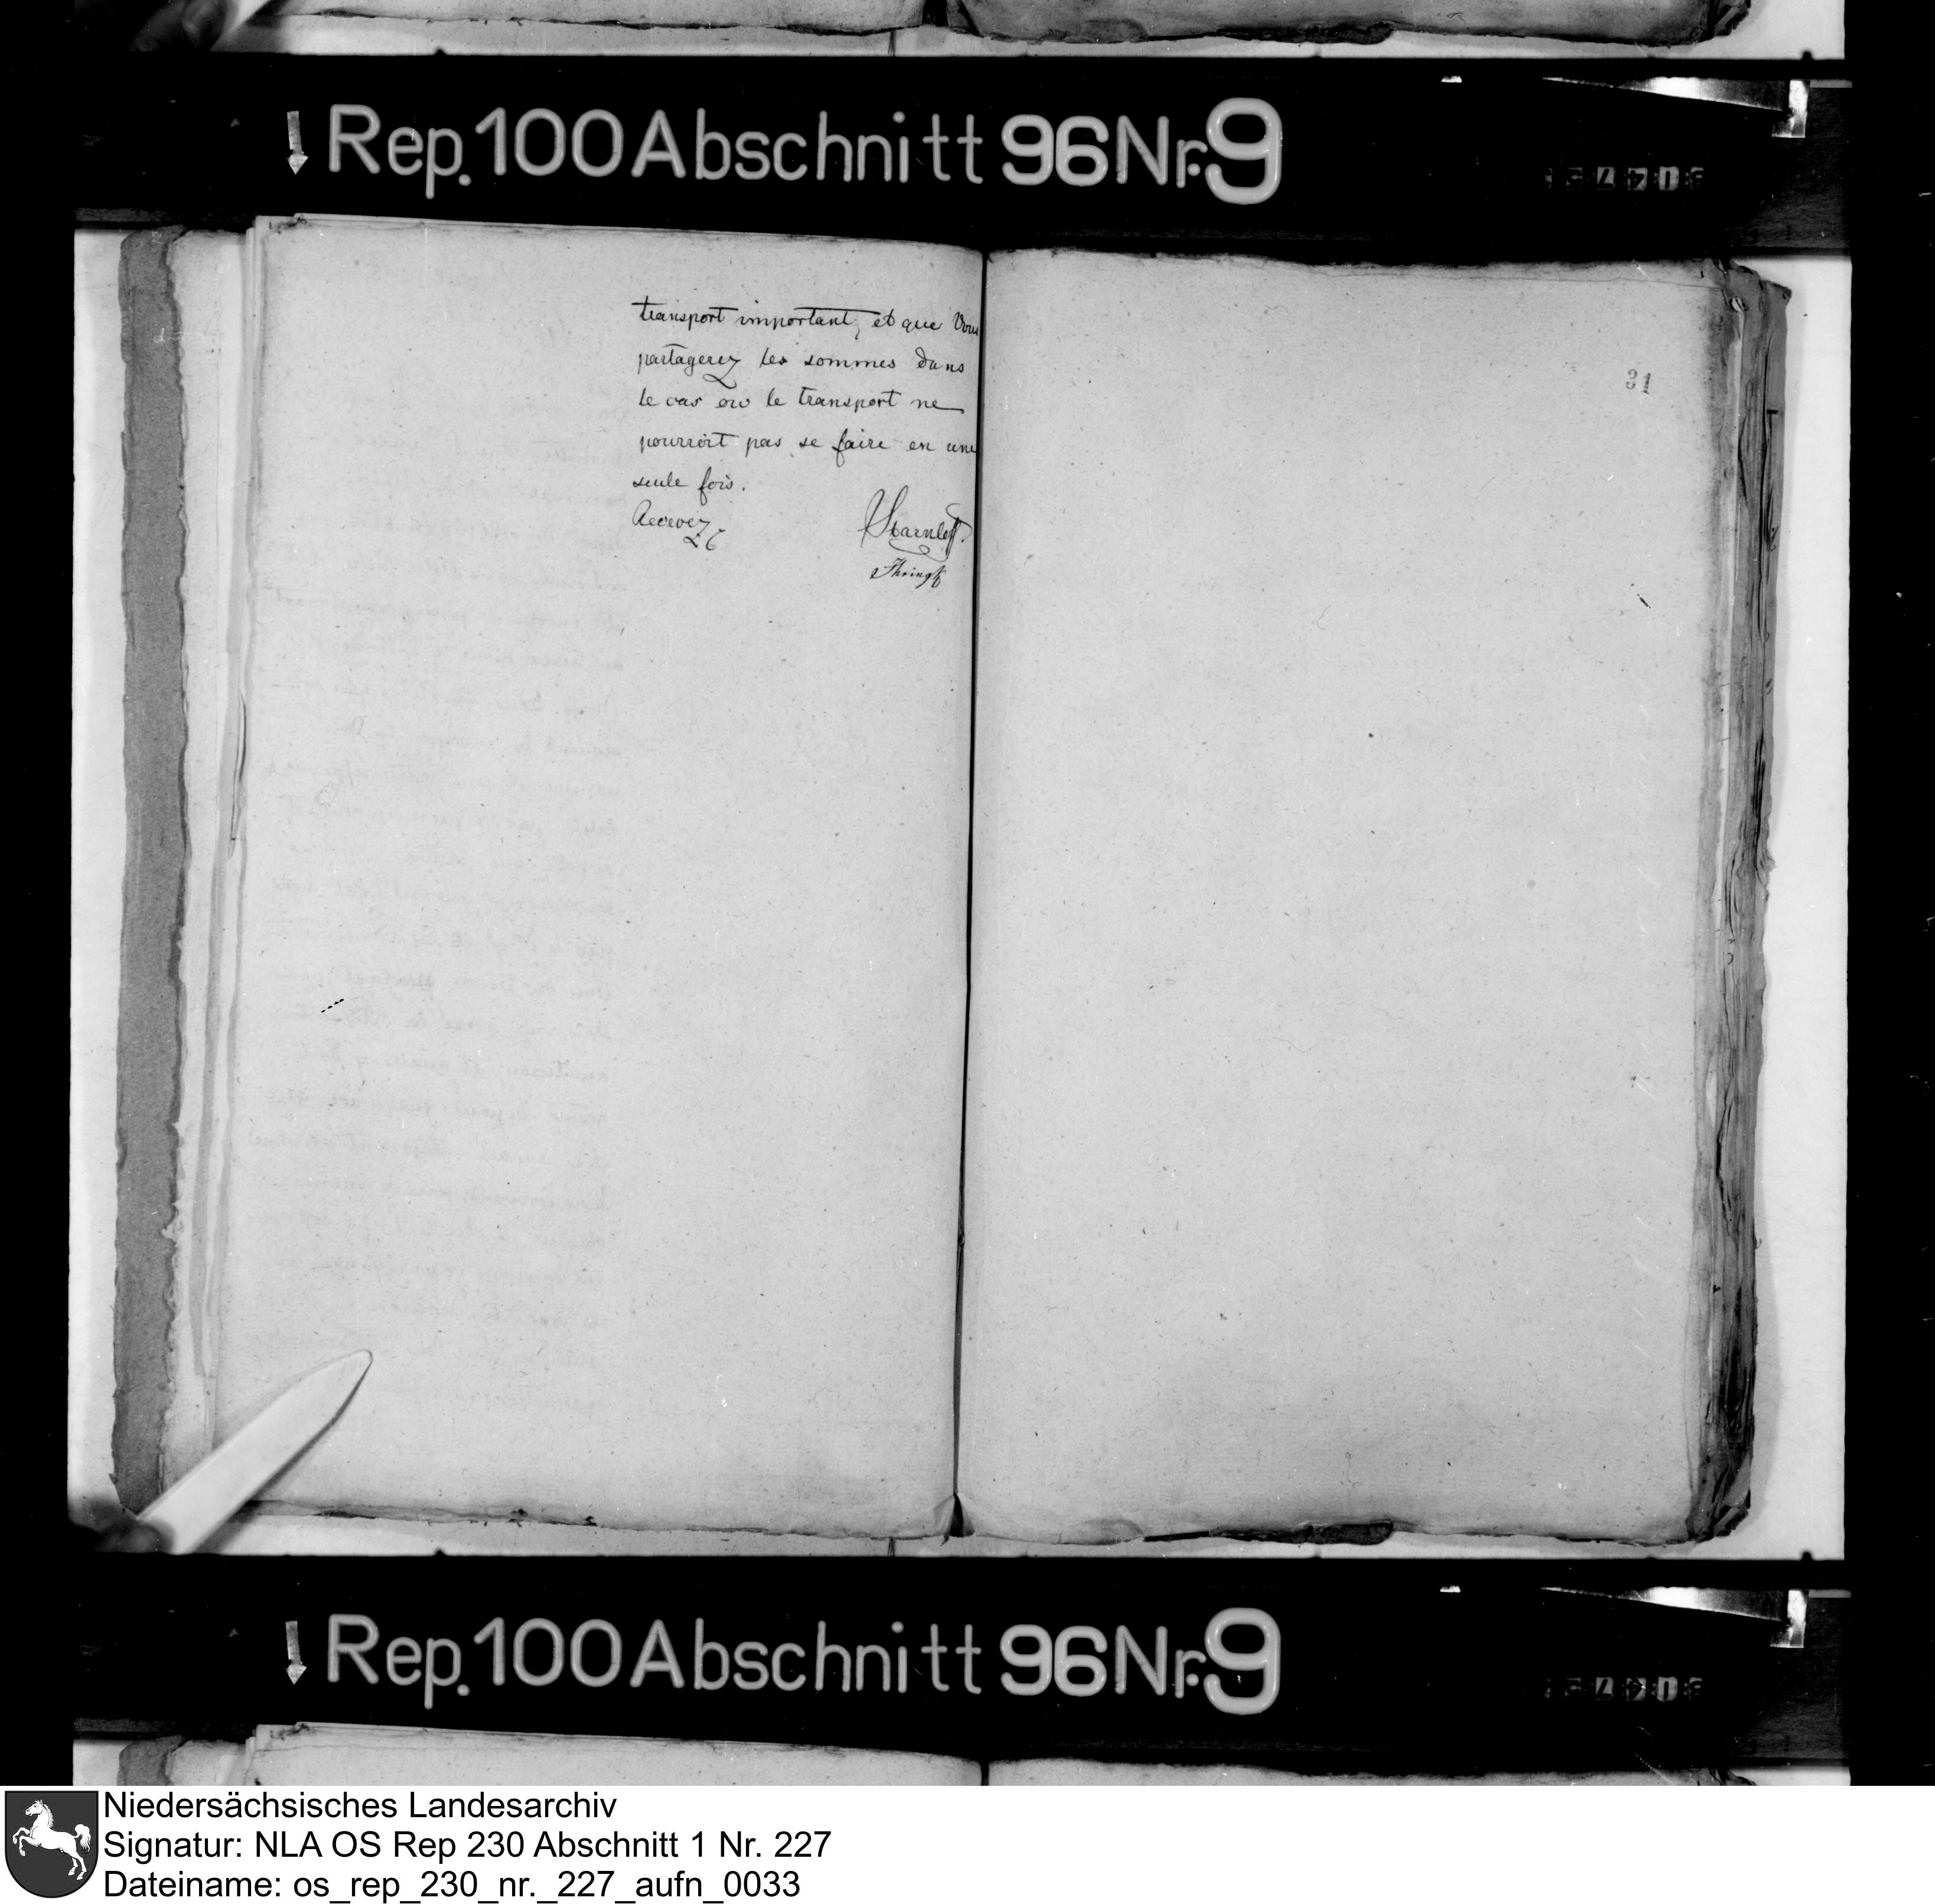 Rep. 100 Abschnitt 96 Nr. 9
transport important, et que Vous
partagerez les sommes dans
le cas ou le transport ne
pourroit pas se faire en une
seule fois.
Recevez
31
Rep. 100 Abschnitt 96 Nr. 9
Niedersächsisches Landesarchiv
Signatur: NLA OS Rep 230 Abschnitt 1 Nr. 227
Dateiname: os_rep_230_nr._227_aufn_0033